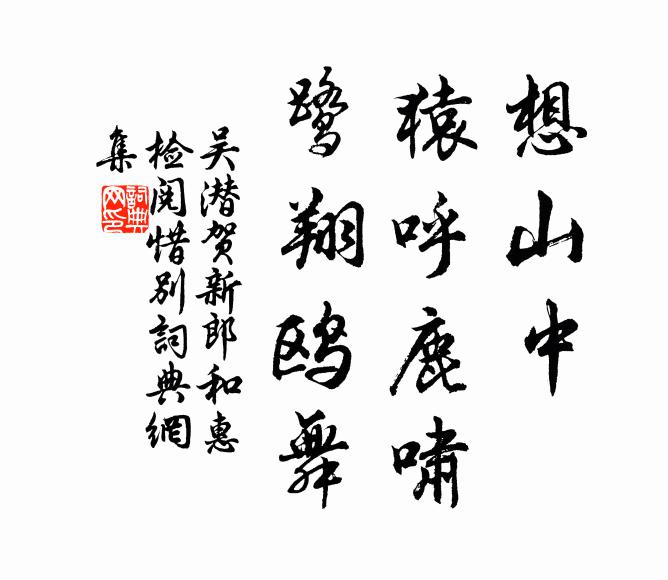 想山中
猿呼鹿啸
鹭翔鸥舞
吴潜贺新郎和惠
检阅惜别詞典網
集
詞典网印